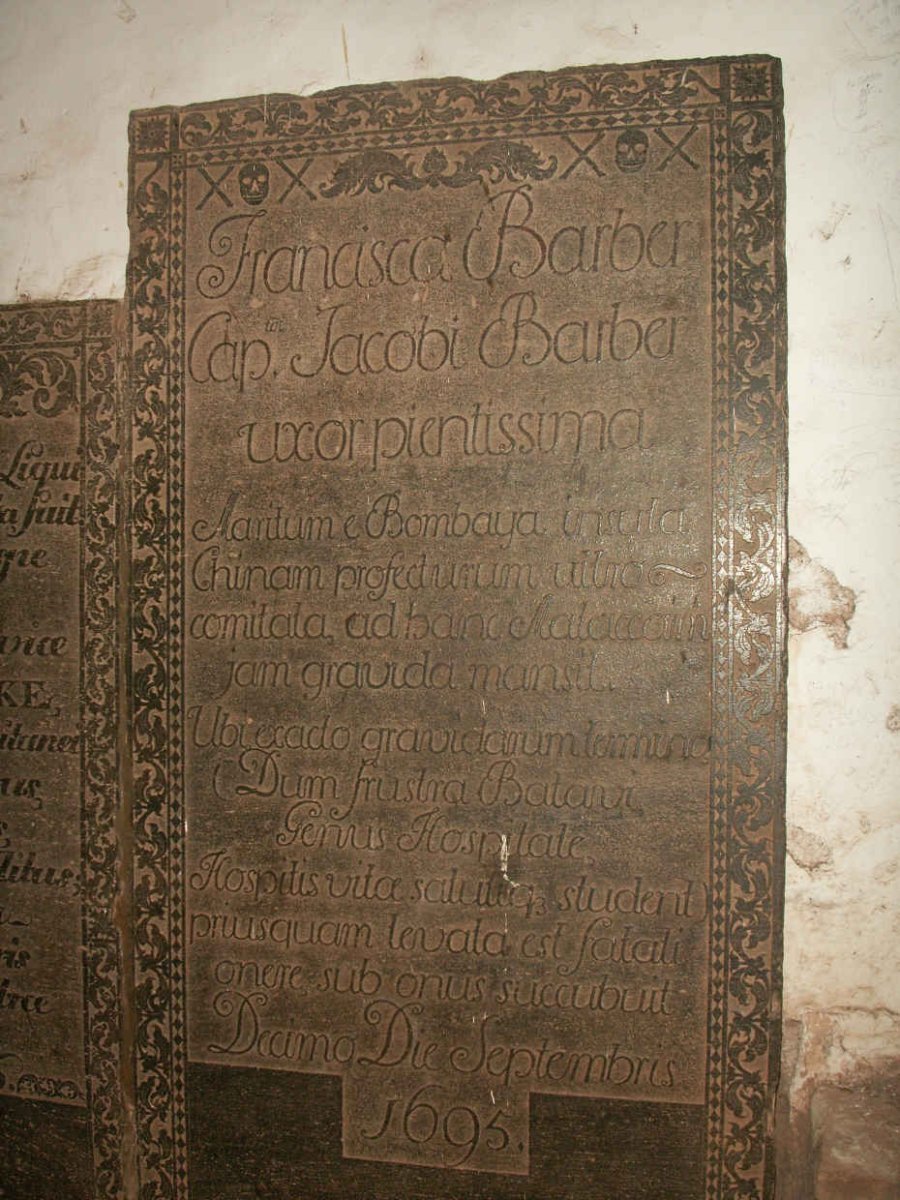 Liqui
a fuit
que
vice
KE,
itanei
us,
ditus,
ris
træ
Francisca Barber
Cap.tn Jacobi Barber
uxor pientissima
Maritum e Bombaya insula
Chinam profecturum ultro
comitata, ad hanc Malaccam
jam gravida mansit.
Ubi exacto gravidarum termino
(Dum frustra Batavi,
Genus Hospitale,
Hospitis vitæ salutiq3 student)
priusquam levata est fatali
onere sub onus succubuit
Decimo Die Septembris
1695.